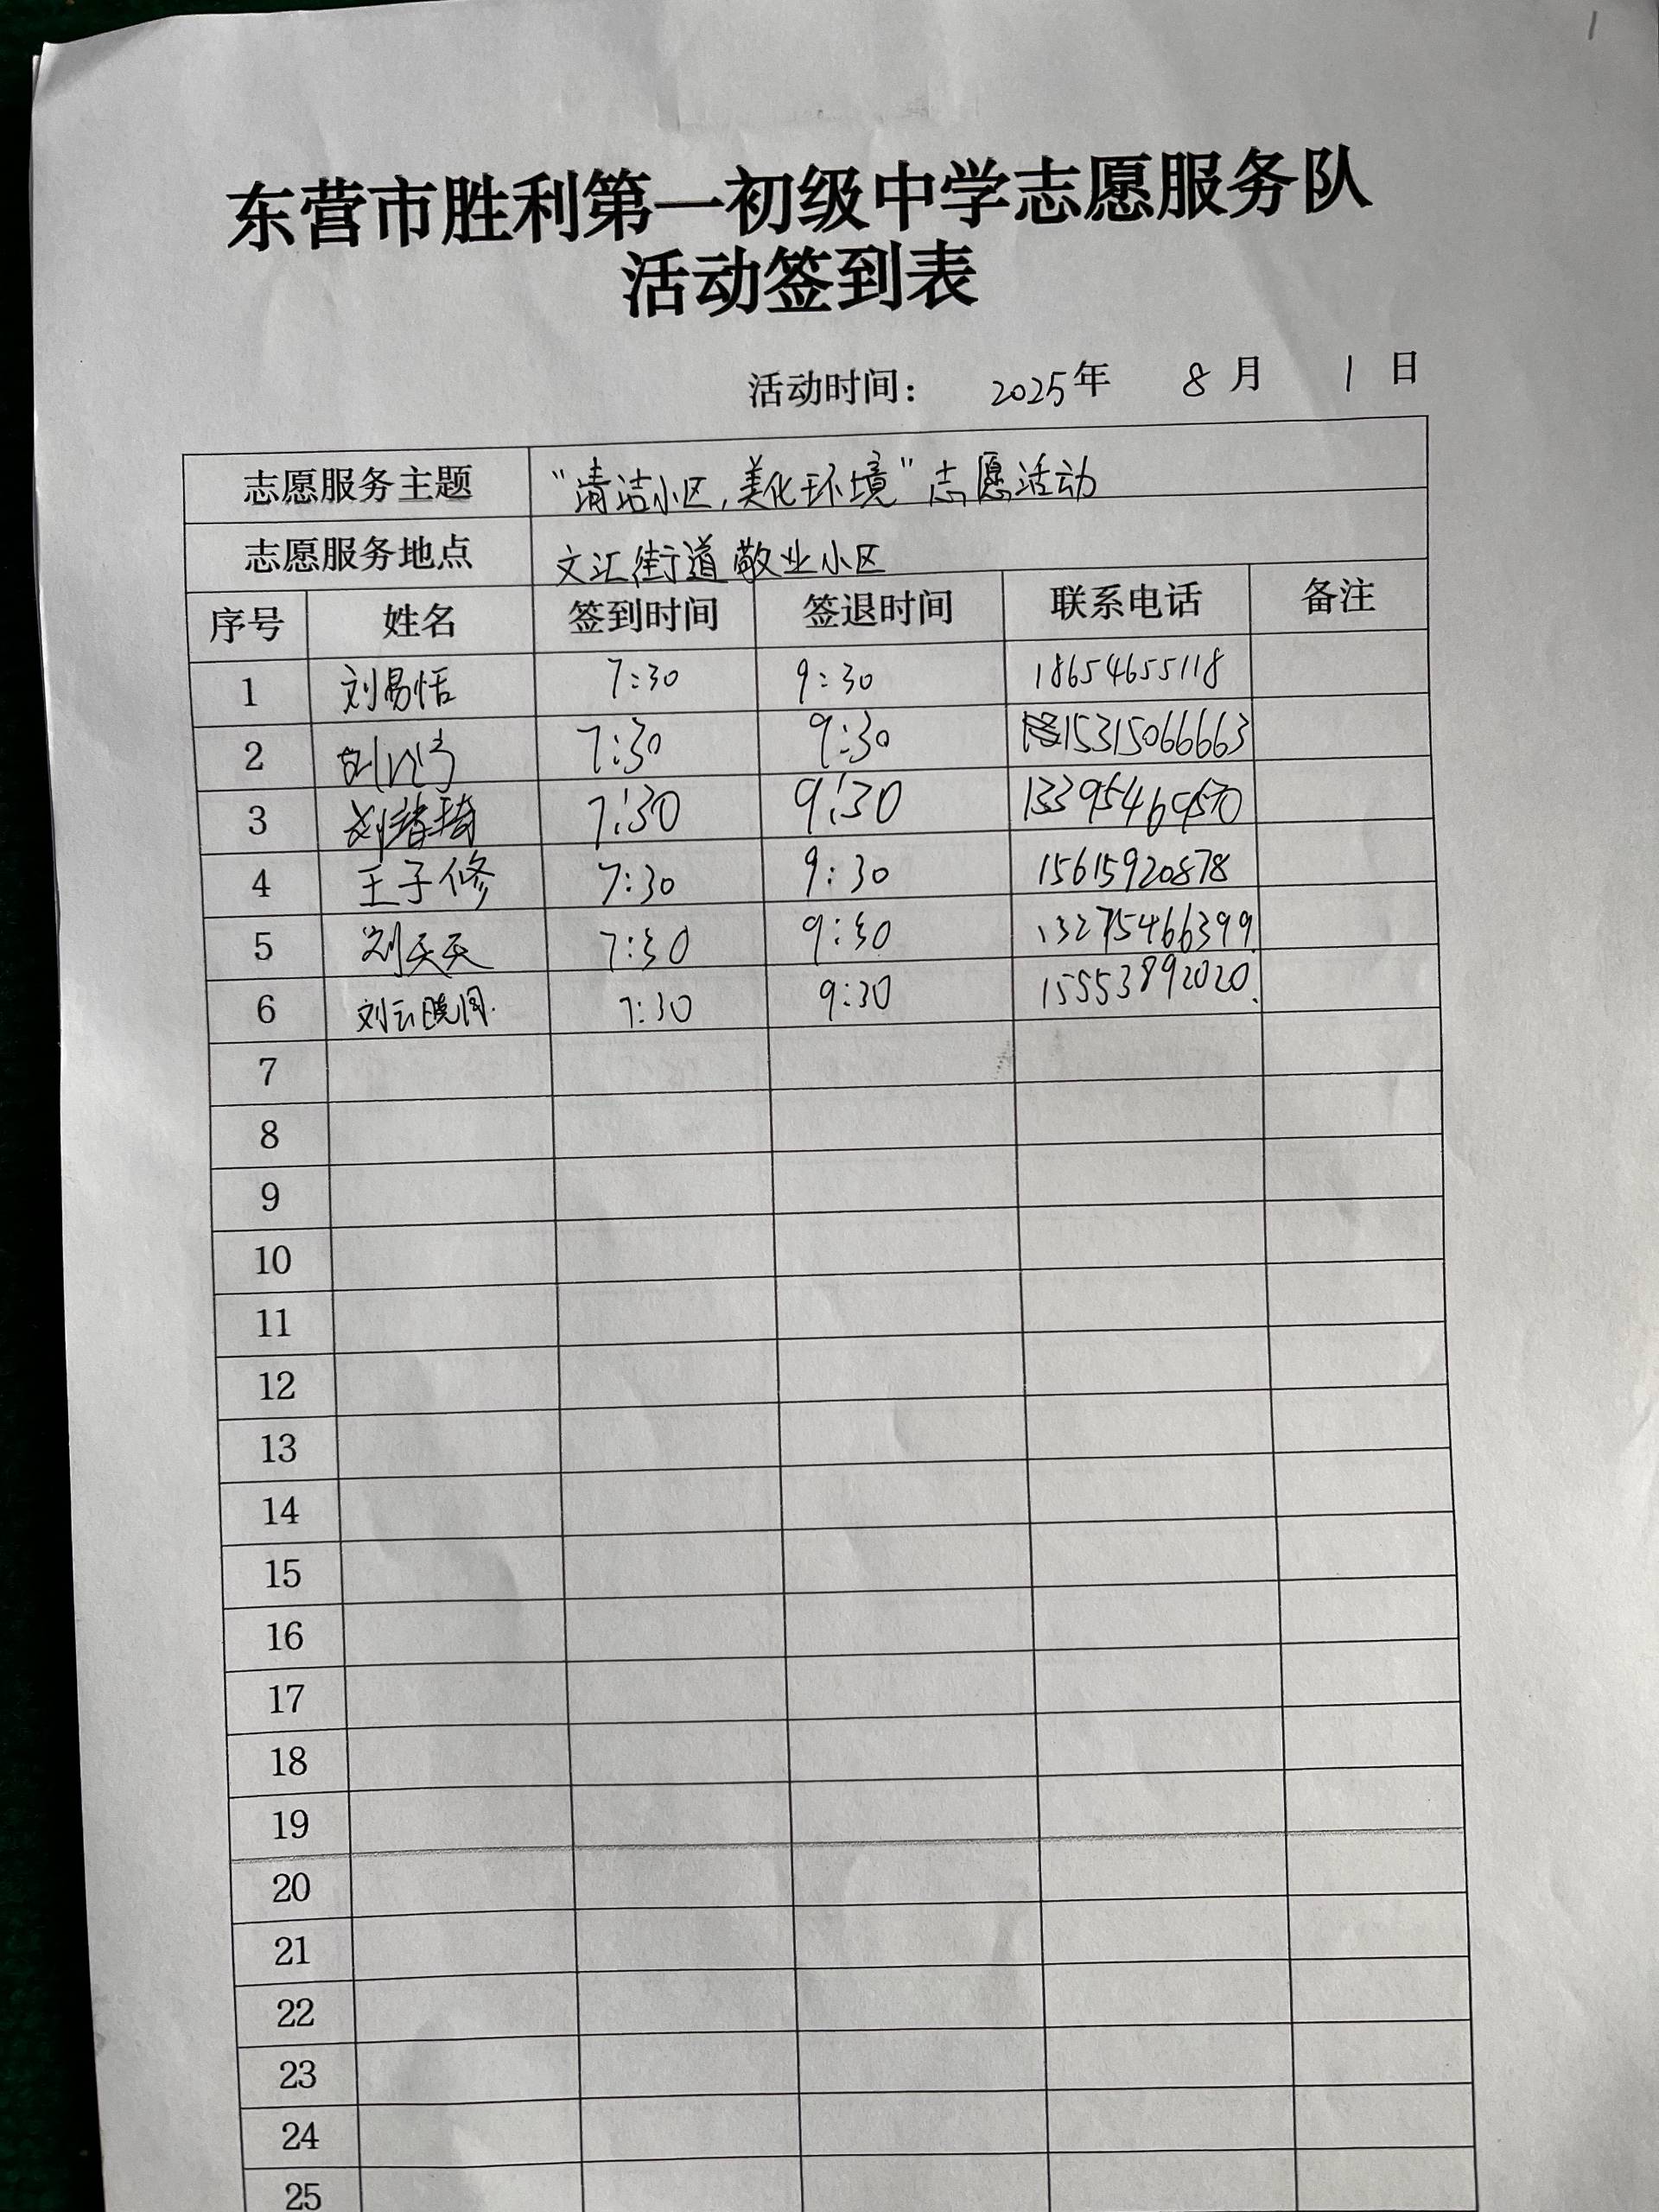 1
东营市胜利第一初级中学志愿服务队
活动签到表
活动时间： 2025年 8月 1日
志愿服务主题 “清洁小区,美化环境”志愿活动
志愿服务地点 文汇街道敬业小区
序号 姓名 签到时间 签退时间 联系电话 备注
1 刘易恬 7:30 9:30 18654655118
2 7:30 9:30 15315066663
3 7:30 9:30
4 王子修 7:30 9:30 15615920878
5 刘天天 7:30 9:30 13275466399
6 7:30 9:30 15553892020
7
8
9
10
11
12
13
14
15
16
17
18
19
20
21
22
23
24
25